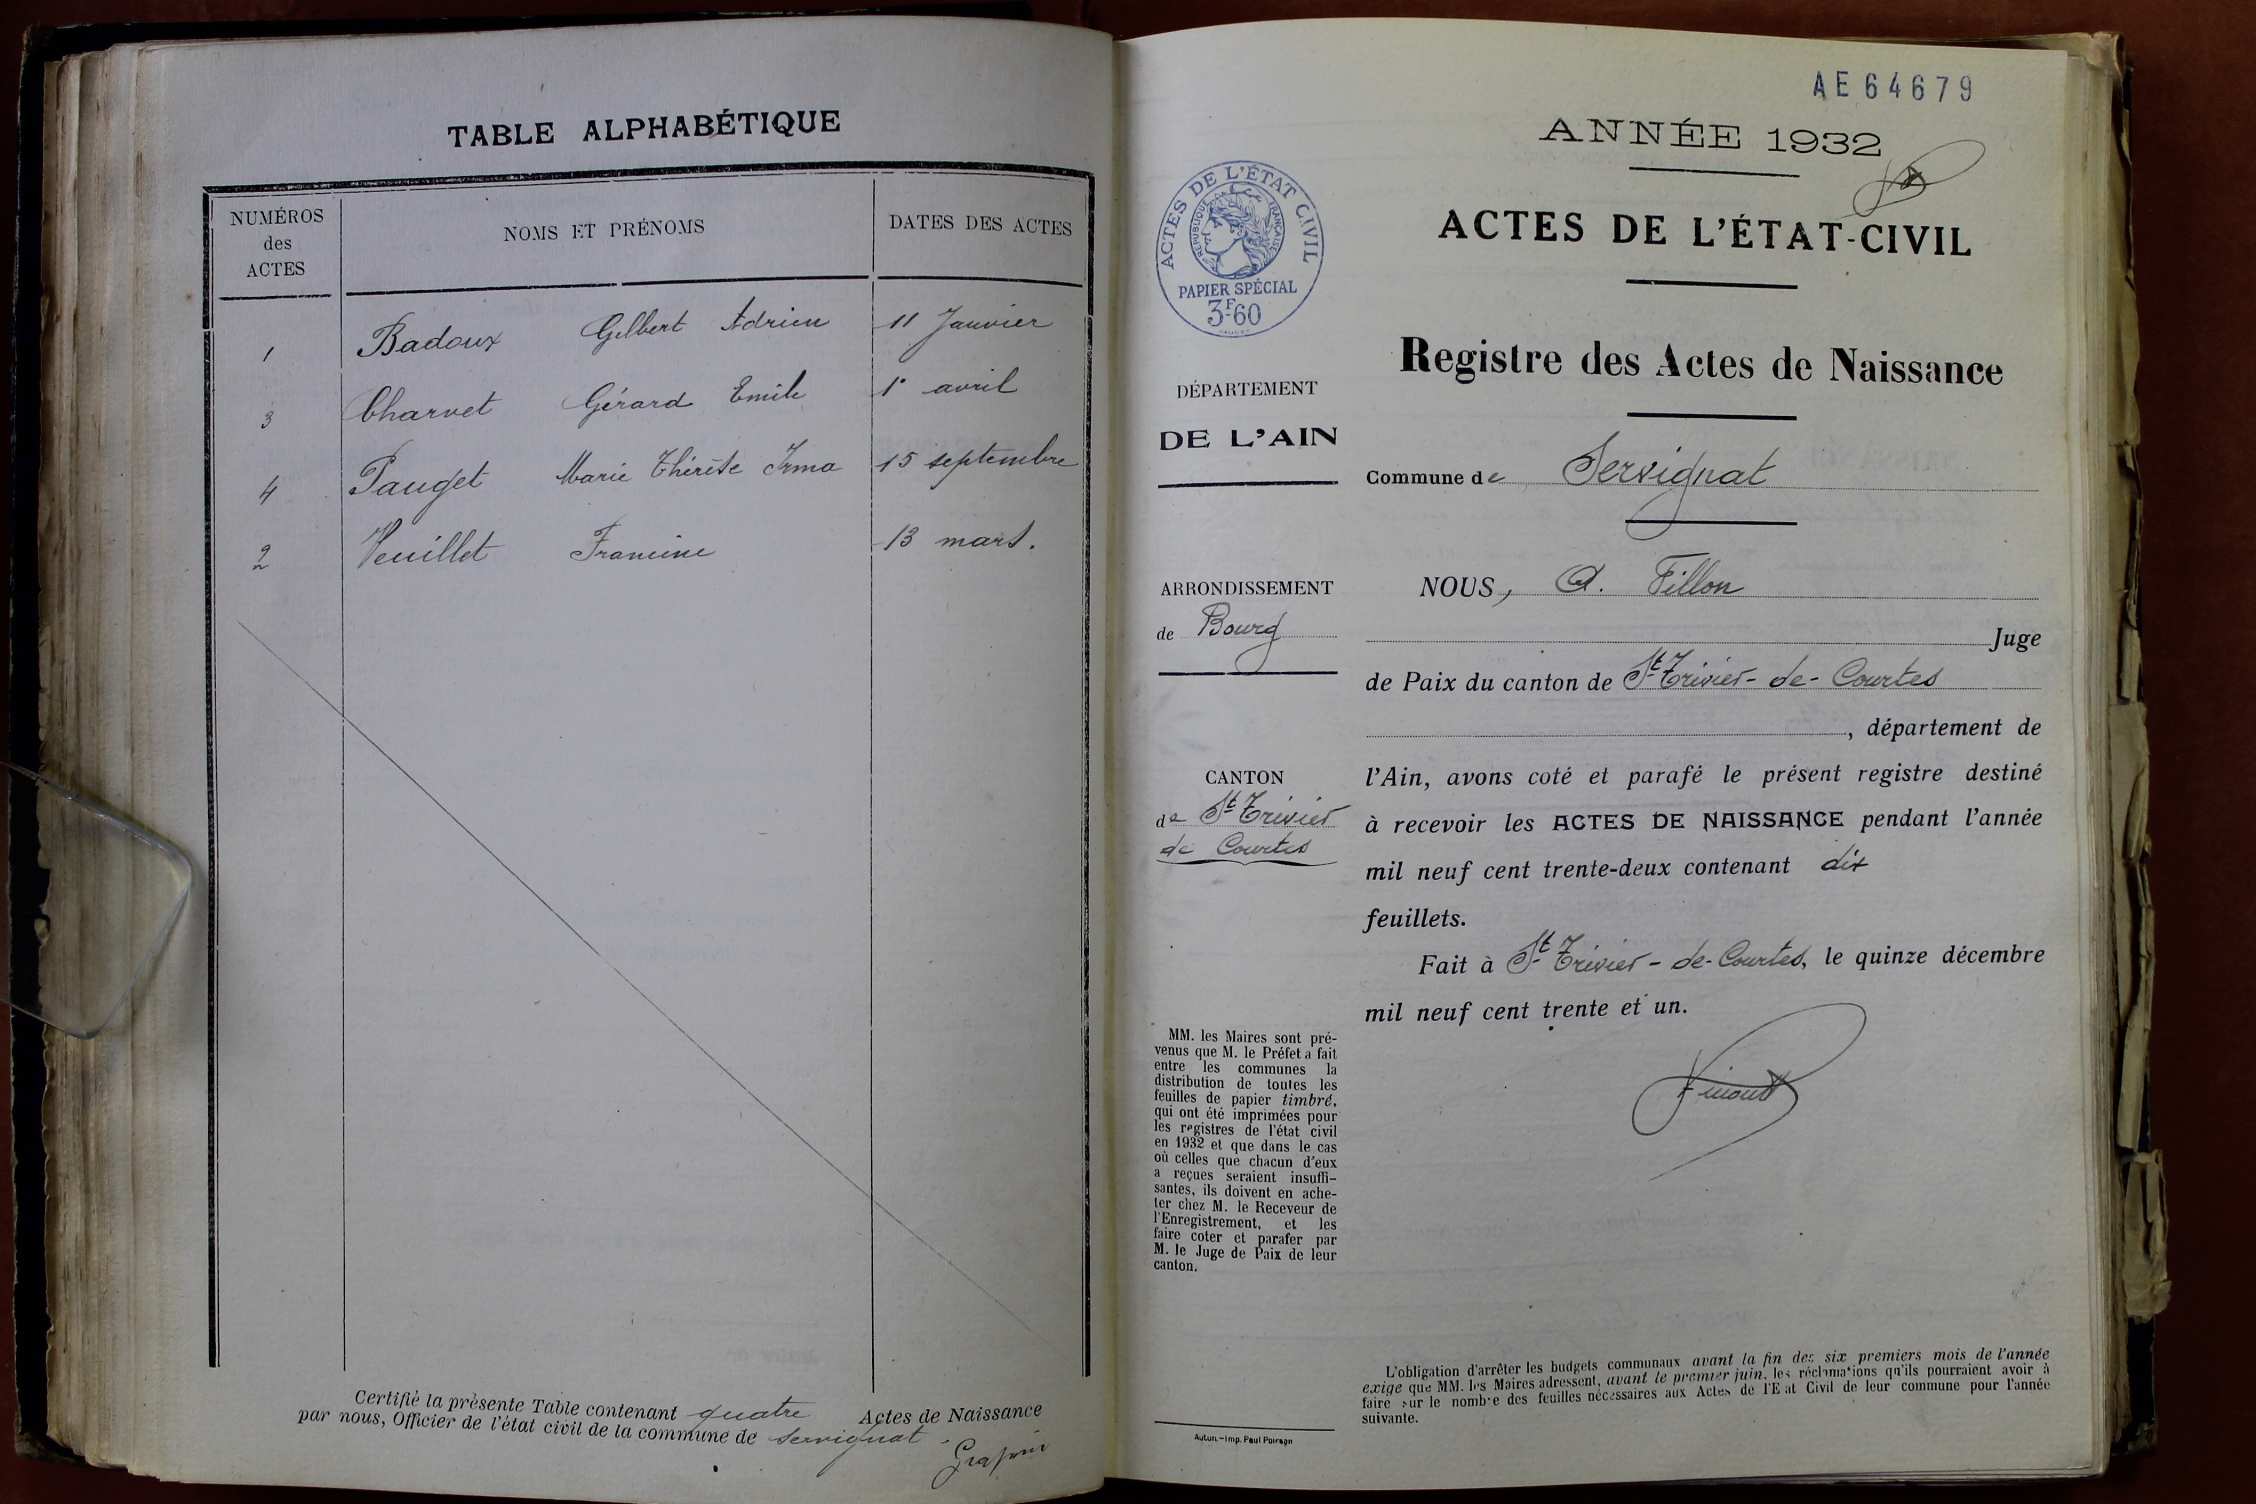 TABLE ALPHABÉTIQUE
NUMÉROS
des
ACTES
NOMS ET PRÉNOMS
DATES DES ACTES
1 Badoux Gilbert Adrien 11 Janvier
3 Charvet Gérard Emile 1er avril
4 Pauget Marie Thérèse Irma 15 septembre
2 Veuillet Francine 13 mars.
Certifié la présente Table contenant quatre Actes de Naissance
par nous, Officier de l'état civil de la commune de Servignat.
AE64679
ANNÉE 1932
ACTES DE L'ÉTAT CIVIL
RÉPUBLIQUE FRANÇAISE
PAPIER SPÉCIAL
3F60
ACTES DE L'ÉTAT-CIVIL
Registre des Actes de Naissance
DÉPARTEMENT
DE L'AIN
Commune de Servignat
ARRONDISSEMENT
de Bourg
CANTON
de St Trivier
de Courtes
NOUS, A. Fillon
Juge
de Paix du canton de St Trivier-de-Courtes
, département de
l'Ain, avons coté et parafé le présent registre destiné
à recevoir les ACTES DE NAISSANCE pendant l'année
mil neuf cent trente-deux contenant dix
feuillets.
Fait à St Trivier-de-Courtes, le quinze décembre
mil neuf cent trente et un.
MM. les Maires sont pré-
venus que M. le Préfet a fait
entre les communes la
distribution de toutes les
feuilles de papier timbré,
qui ont été imprimées pour
les registres de l'état civil
en 1932 et que dans le cas
où celles que chacun d'eux
a reçues seraient insuffi-
santes, ils doivent en ache-
ter chez M. le Receveur de
l'Enregistrement, et les
faire coter et parafer par
M. le Juge de Paix de leur
canton.
Autun.-Imp. Paul Poirson
L'obligation d'arrêter les budgets communaux avant la fin des six premiers mois de l'année
exige que MM. les Maires adressent, avant le premier juin, les réclamations qu'ils pourraient avoir à
faire sur le nombre des feuilles nécessaires aux Actes de l'Etat Civil de leur commune pour l'année
suivante.